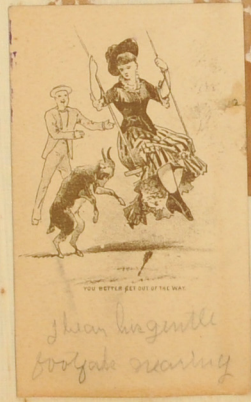 YOU BETTER GET OUT OF THE WAY.
I hear her gentle
footfall nearing